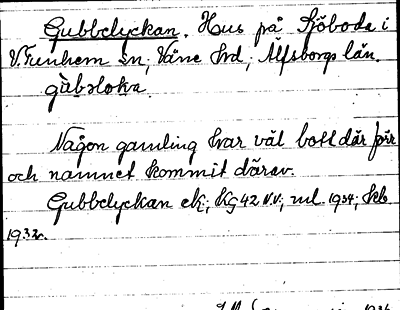 Gubbelyckan. Hus på Sjöboda i
V. Tunhem sn; Väne hrd; Älfsborgs län.
gùbəlokа.
Någon gamling har väl bott där förr
och namnet kommit därav.
Gubbelyckan ek; Kg 42 V.v; utl. 1934; skb
1932.